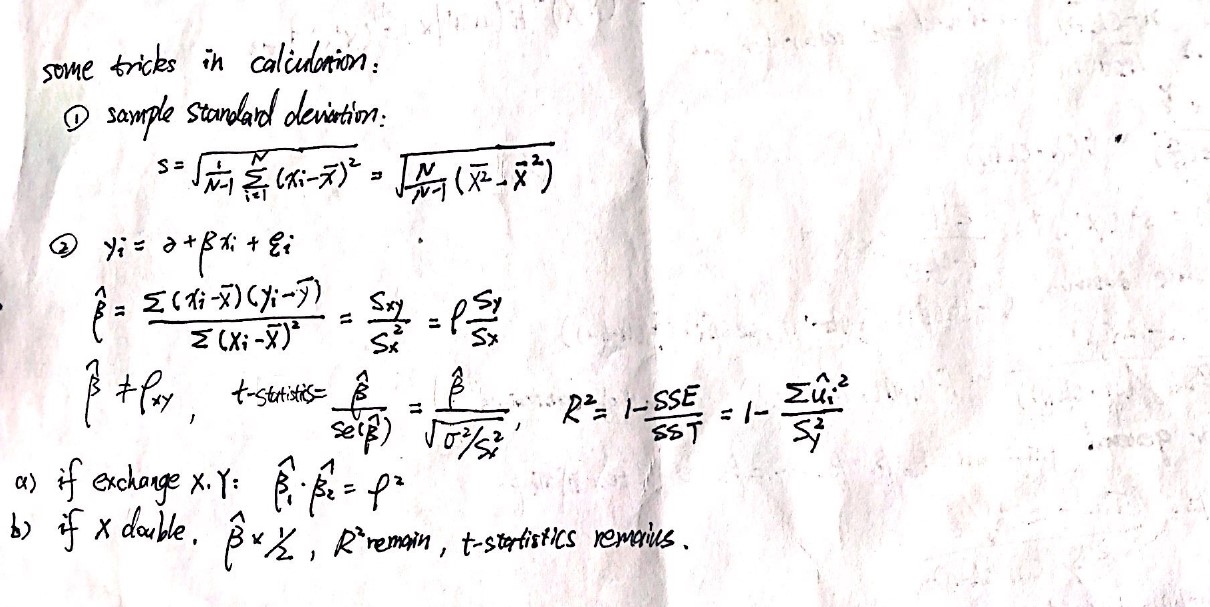 some tricks in calculation:
① sample standard deviation:
s = √(1/(N-1) Σ_{i=1}^{N} (xᵢ-x̄)²) = √(N/(N-1) (x̄² - x̄²))
② yᵢ = α + βxᵢ + εᵢ
β̂ = Σ(xᵢ-x̄)(yᵢ-ȳ) / Σ(xᵢ-x̄)² = Sxy/Sx² = ρ Sy/Sx
β̂ ≠ ρxy, t-statistics = β̂/se(β̂) = β̂/√(σ²/Sx²), R² = 1-SSE/SST = 1- Σûᵢ²/Sy²
a) if exchange X.Y: β̂₁·β̂₂ = ρ²
b) if X double. β̂ × 1/2, R² remain, t-statistics remains.